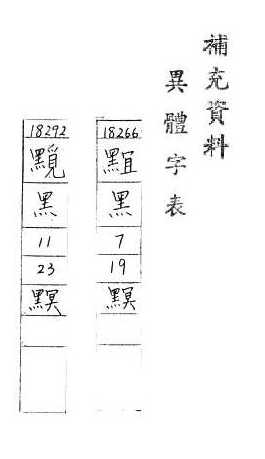 補充資料
異體字表
18266
黑
7
19
18292
黑
11
23